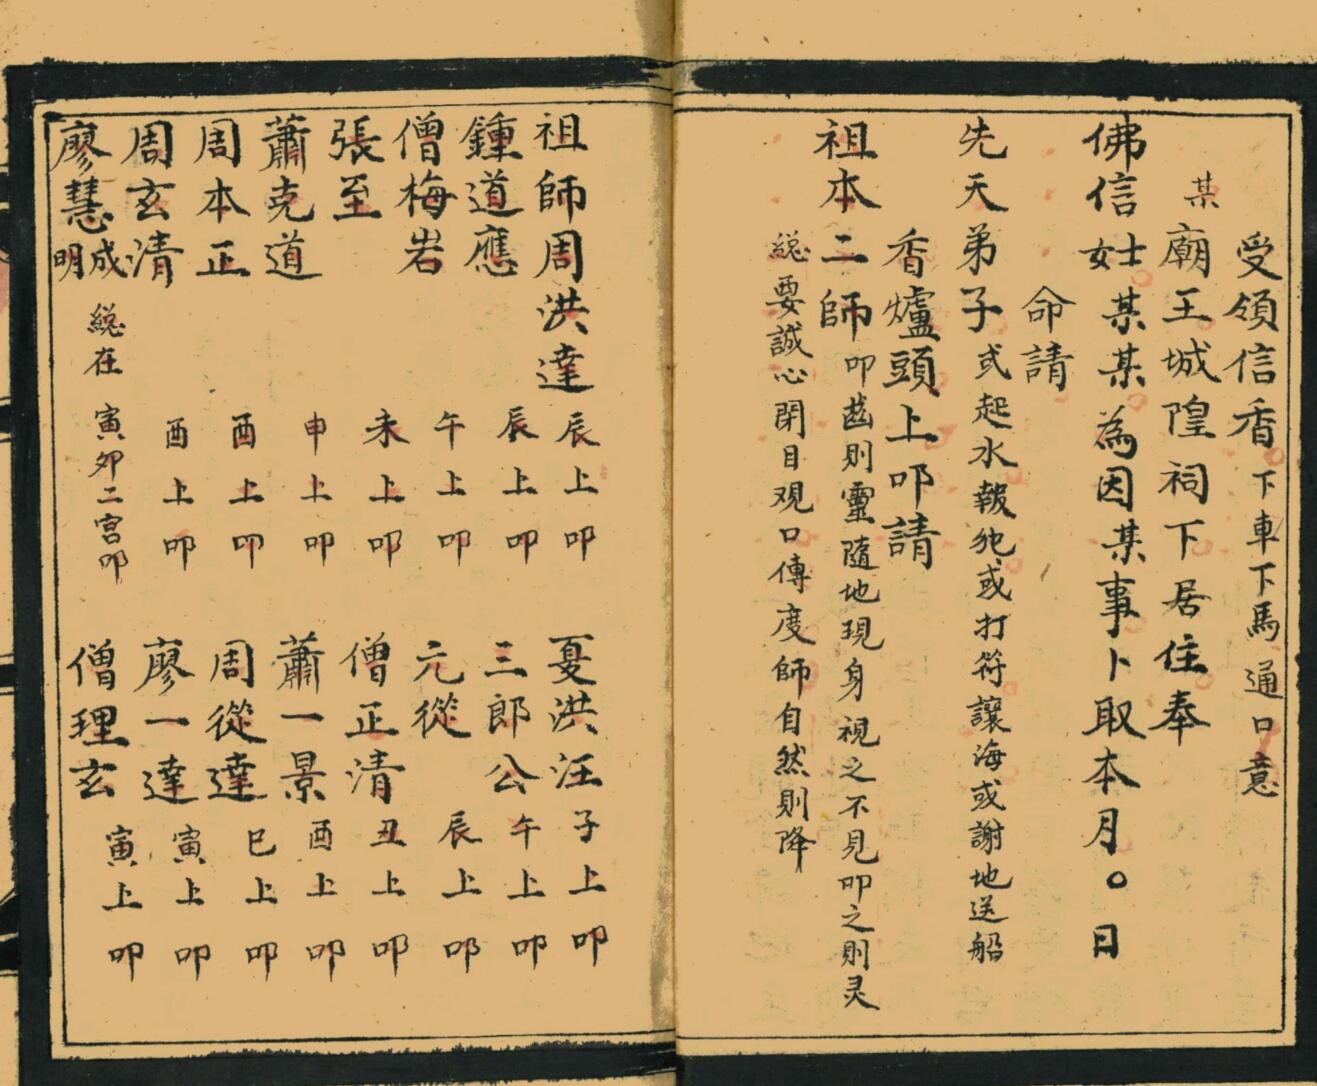 受領信香下車下馬通口意
某廟王城隍祠下居住奉
佛信士女某某為因某事卜取本月〇日
命請
先天弟子或起水報 或打符讓海或謝地送船
香爐頭上叩請
祖本二師叩齒則靈隨地現身視之不見叩之則灵
緫要誠心閉目观口傳度師自然則降
祖師周洪達 辰上叩 夏洪汪 子上叩
鍾道應 辰上叩 三郎公 午上叩
僧梅岩 午上叩 元從 辰上叩
張至 未上叩 僧正清 丑上叩
蕭克道 申上叩 蕭一景 酉上叩
周本正 酉上叩 周從達 巳上叩
周玄清 酉上叩 廖一達 寅上叩
廖慧成明 緫在寅卯二宮叩 僧理玄 寅上叩